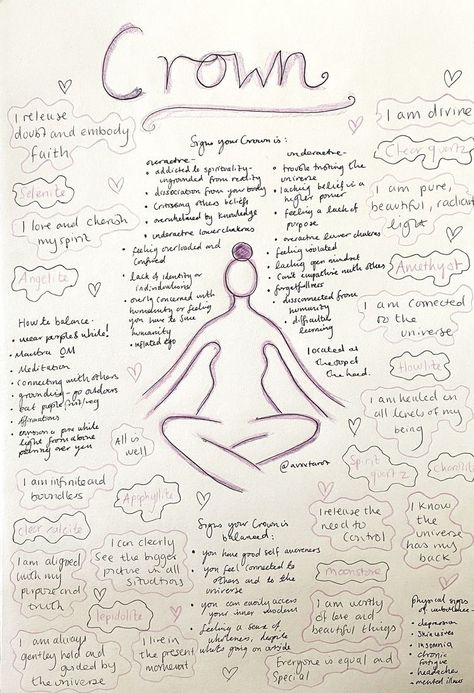 Crown
I release
doubt and embody
faith
Selenite
I love and cherish
my spirit
Angelite
How to balance-
• wear purple & white!
• Mantra OM
• Meditation
• connecting with others
• grounding - go outdoors
• eat purple fruit/veg
• affirmations
• envision a pure white
light from above
pouring over you
Signs your Crown is:
overactive-
• addicted to spirituality-
ungrounded from reality
• dissociation from your body
• crossing others beliefs
• overwhelmed by knowledge
• underactive lower chakras
• feeling overloaded and
confused
• lack of identity or
individualism
• overly concerned with
humanity or feeling
you have to save
humanity
• inflated ego
underactive-
• trouble trusting the
universe
• lacking belief in a
higher power
• feeling a lack of
purpose
• overactive lower chakras
• feeling isolated
• lacking open mindset
• Can't empathise with others
• forgetfulness
• disconnected from
humanity
• difficulties
learning
Located at
the top of
the head.
@avivtarot
I am divine
Clear quartz
I am pure,
beautiful, radiant
light
Amethyst
I am connected
to the
universe
Howlite
I am healed on
all levels of my
being
Spirit
quartz
Charoite
All is
well
I am infinite and
boundless
Apophyllite
clear calcite
I can clearly
see the bigger
picture in all
situations
I am aligned
with my
purpose and
truth
lepidolite
I am always
gently held and
guided by
the universe
I live in
the present
moment
Signs your Crown is
balanced:
• you have good self awareness
• you feel connected to
others and to the
universe
• you can easily access
your inner wisdom
• feeling a sense of
wholeness, despite
what's going on outside
I release
the need to
control
Moonstone
I am worthy
of love and
beautiful things
Everyone is equal and
special
I know
the universe
has my
back
physical signs
of imbalance-
• depression
• skin issues
• insomnia
• chronic
fatigue
• headaches
• mental illness